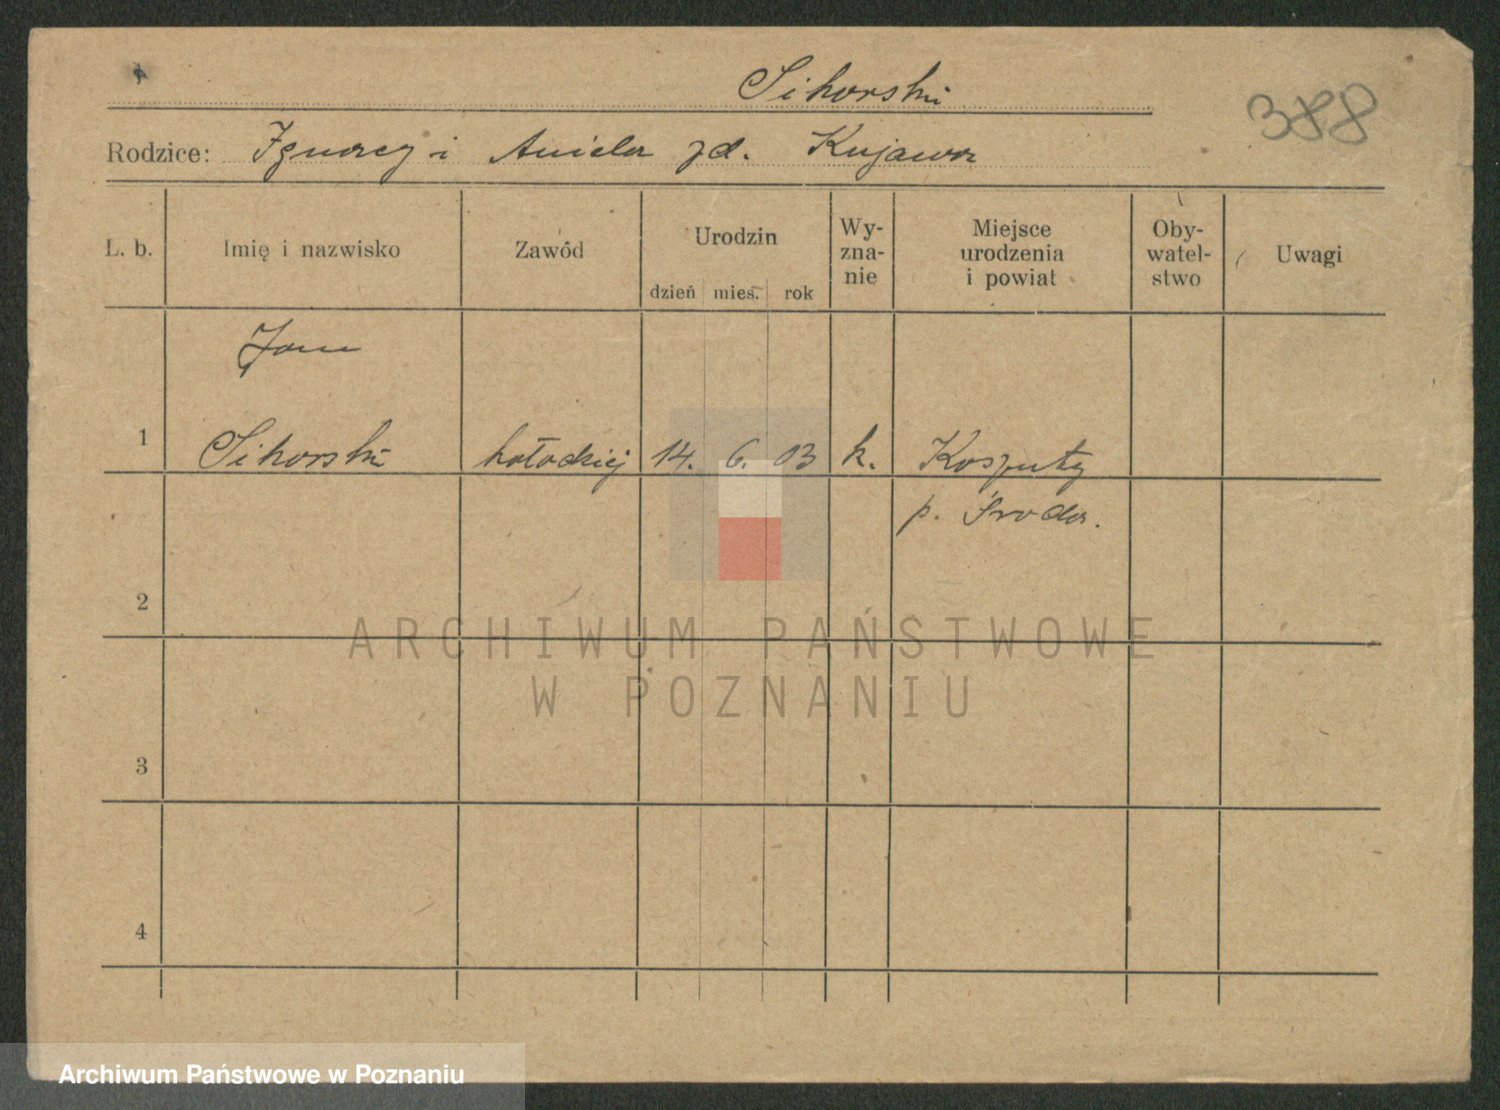 Sikorski
388
Rodzice: Ignacy i Aniela zd. Kujawa
L. b.
Imię i nazwisko
Zawód
Urodzin
dzień mies. rok
Wy-
zna-
nie
Miejsce
urodzenia
i powiat
Oby-
watel-
stwo
Uwagi
Jan
1 Sikorski kołodziej 14. 6. 03 k. Koszuty
p. Środa.
2
ARCHIWUM PAŃSTWOWE
W POZNANIU
3
4
Archiwum Państwowe w Poznaniu